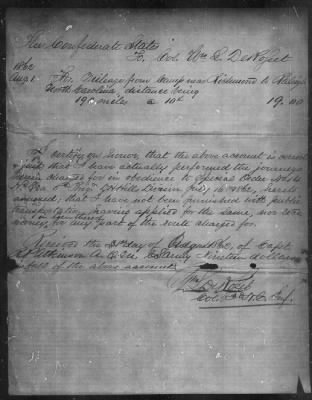 The Confederate States
To Col. Wm L. DeRosset
1862
Aug 1 For Mileage from Camp near Richmond to Raleigh
North Carolina distance being
190 miles a 10c 19.00
I certify on honor that the above account is correct
& just that I have actually performed the journey
herein charged for in obedience to Special Order No
Division July 16 1862, herewith
annexed; that I have not been furnished with public
transportation, nor
money for any part of the route charged for.
Received the day of August 1862, of Capt
A.Q.M. Nineteen dollars
in full of the above account
Wm L DeRosset
Col 3d N.C. Inf.